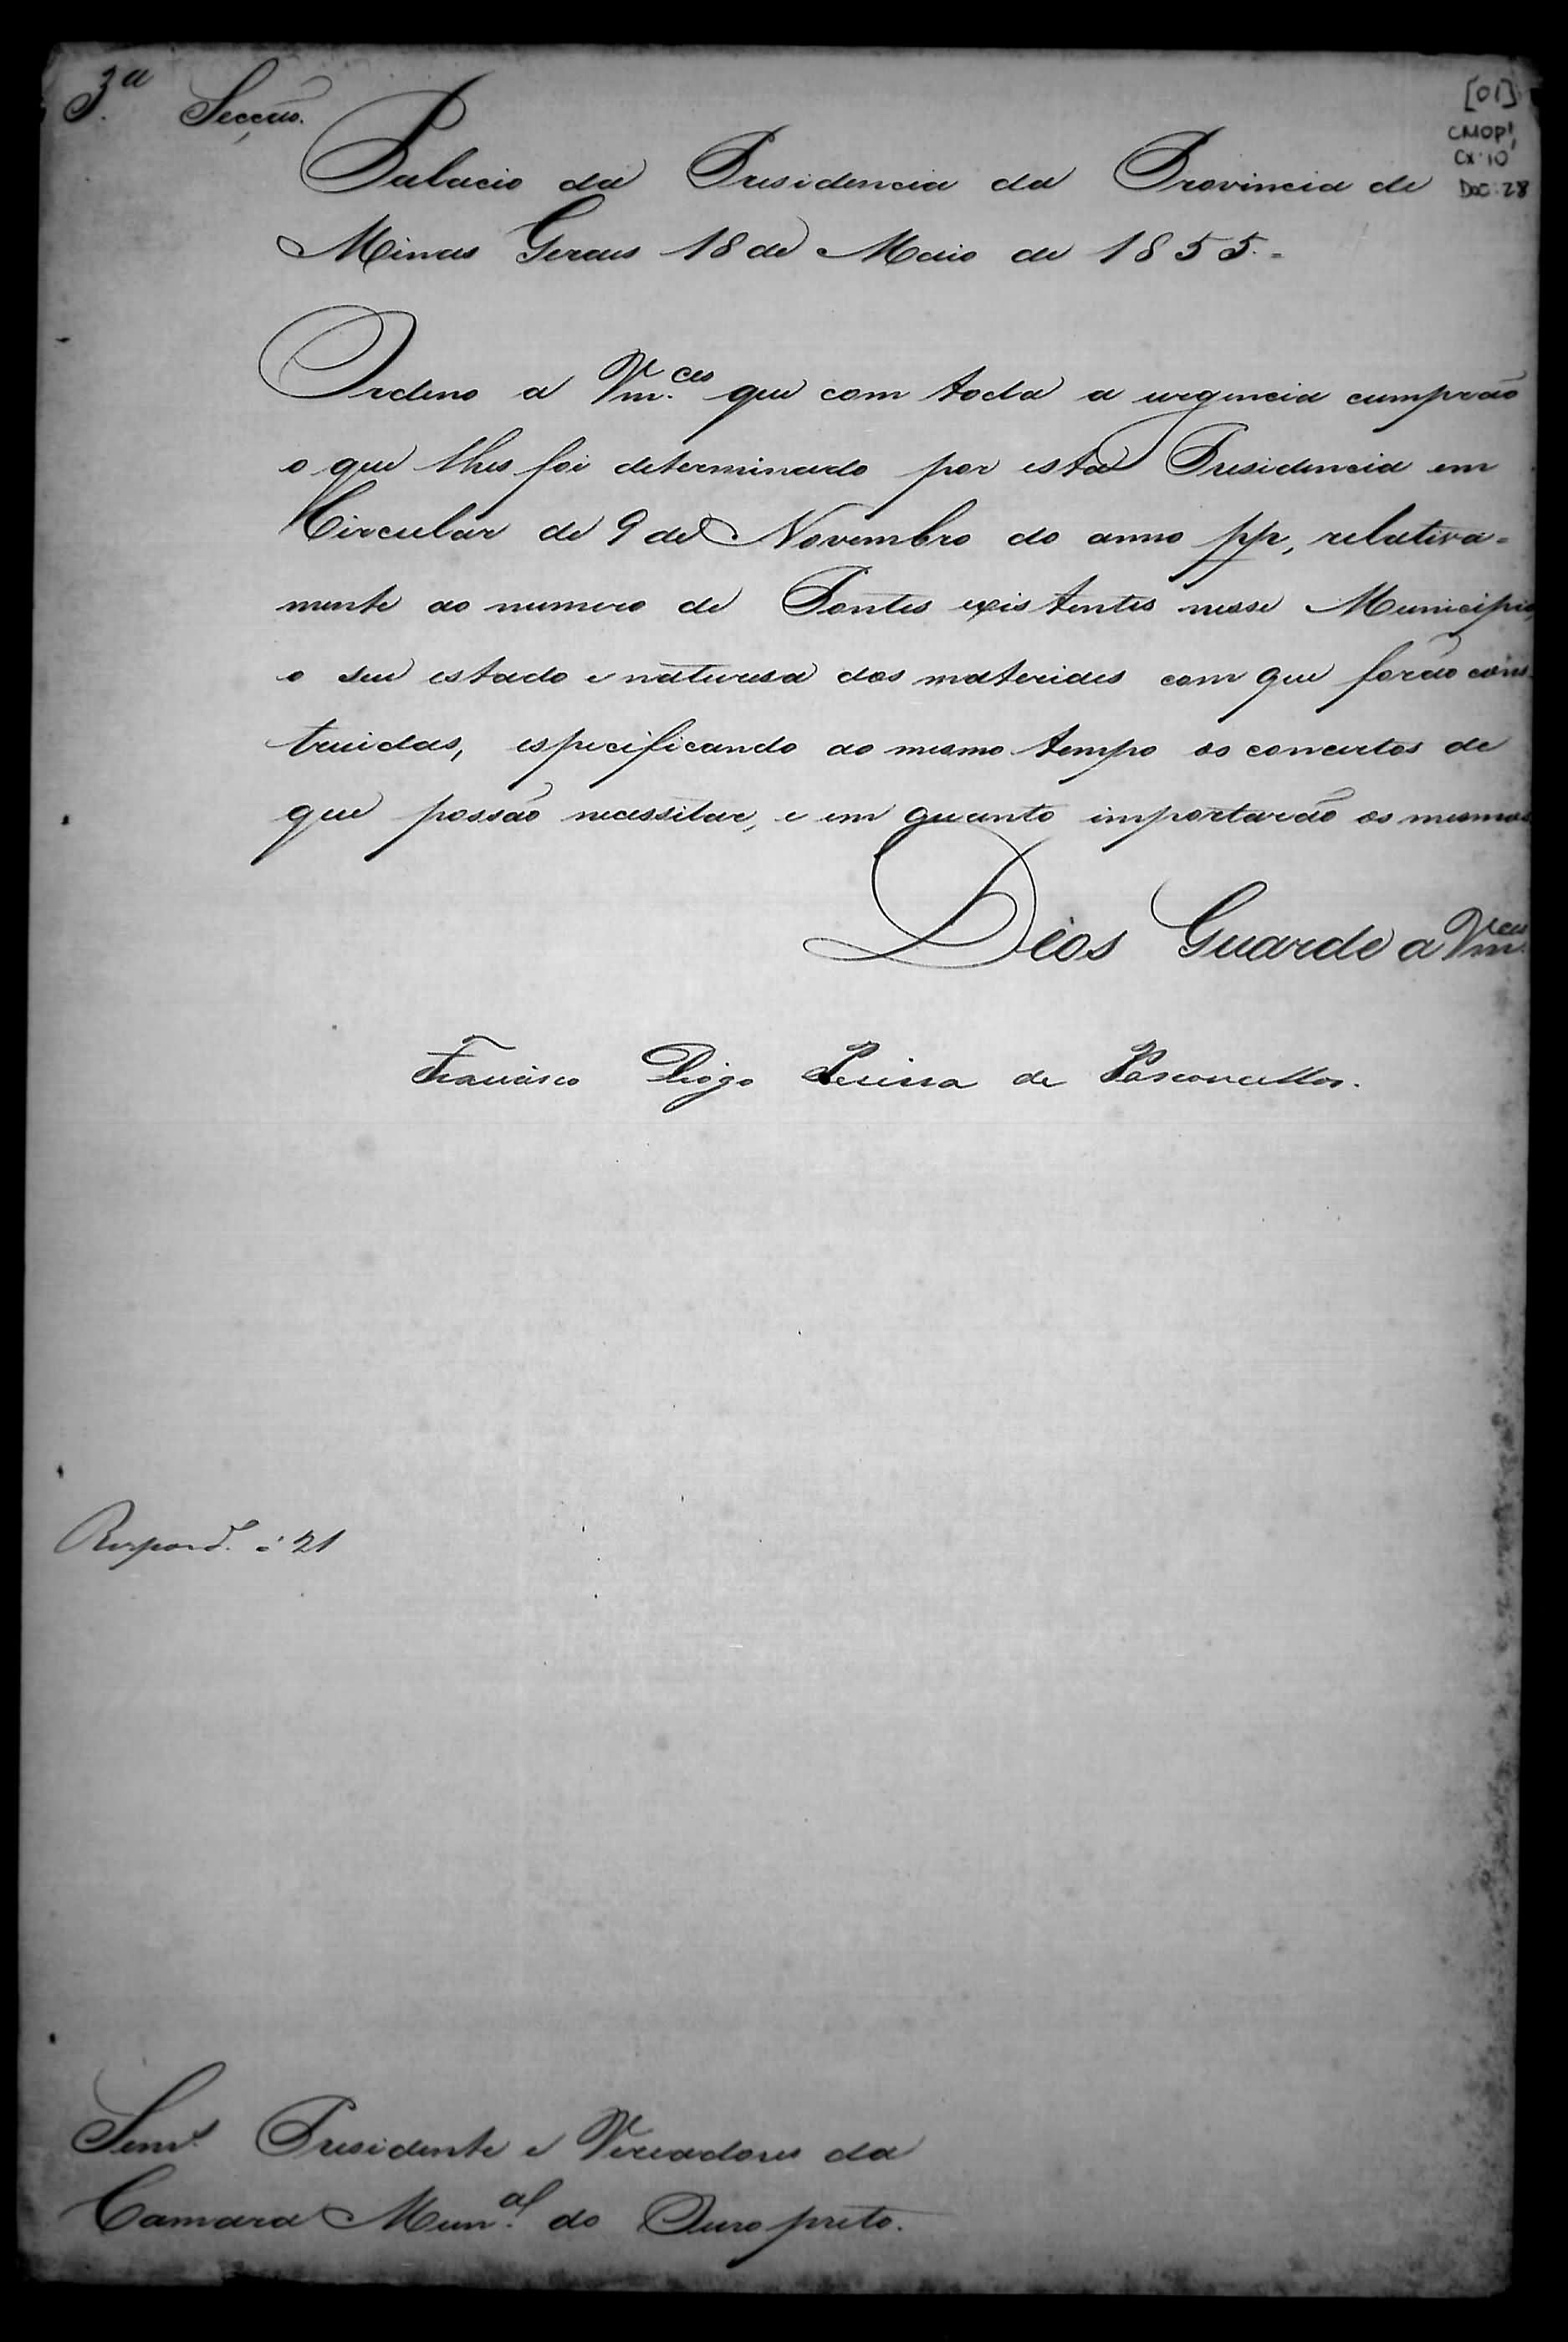 3.ª Secção.
[01]
CMOP!
CX. 10
DOC: 28
Palacio da Presidencia da Provincia de
Minas Geraes 18 de Maio de 1855. =
Ordeno a Vm.ces que com toda a urgencia cumprão
o que lhes foi determinado por esta Presidencia em
Circular de 9 de Novembro do anno pp, relativa=
mente ao numero de Pontes existentes nesse Municipio,
o seu estado e naturesa dos materiaes com que forão cons-
truidas, especificando ao mesmo tempo os concertos de
que possão necessitar, e em quanto importarão os mesmos
Deos Guarde a Vm.ces
Francisco Diogo Pereira de Vasconcellos.
Respond. a 21
Senr.s Presidente e Vereadores da
Camara Mun.al do Ouro preto.